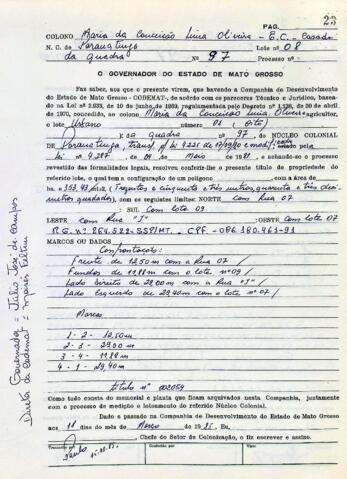 PAG. 23
COLONO Maria da Conceição Lima Oliveira - E.C. - Casada
N. C. de Paranatinga Lote nº 08
da quadra Nº 97 Processo nº
O GOVERNADOR DO ESTADO DE MATO GROSSO
Faz saber, aos que o presente virem, que havendo a Companhia de Desenvolvimento
do Estado de Mato Grosso - CODEMAT-, de acordo com os pareceres Técnico e Jurídico, basea-
do na Lei nº 2.933, de 10 de junho de 1969, regulamentada pelo Decreto nº 1.138, de 20 de abril de
1970, concedido, ao colono Maria da Conceição Lima Oliveira agricultor,
o lote Urbano número 08 (oito)
): da quadra nº 97, do NÚCLEO COLONIAL
DE Paranatinga, transf. p/
lei 4.287, de 09 de Maio de 1981, e achando-se o processo
revestido das formalidades legais, resolveu conferir-lhe o presente título de propriedade do
referido lote, o qual tem a configuração de um polígono com a área de
ha = 353,43 m2, ( Trezentos e cinquenta e três metros, quarenta e três decí-
metros quadrados, com os seguintes limites: NORTE com Rua 07
; SUL com Lote 09
LESTE com Rua "I" OESTE com Lote 07
MARCOS OU DADOS
Confrontações:
Frente de 12,50 m com a Rua 07 /
Fundos de 11,88 m com o lote nº 09 /
Lado direito de 29,00 m com a Rua "I" /
Lado Esquerdo de 29,40 m com o lote 07 /
Marcos
1 - 2 - 12,50m
2 - 3 - 29,00 m
3 - 4 - 11,88 m
4 - 1 - 29,40m
título nº 002054
Como tudo consta do memorial e planta que ficam arquivados nesta Companhia, juntamente
com o processo de medição e loteamento do referido Núcleo Colonial.
Dado e passado na Companhia de Desenvolvimento do Estado de Mato Grosso
aos 18 dias do mês de Março de 1985. Eu,
Chefe do Setor de Colonização, o fiz escrever e assino.
Conferido por
Visto
Governador = Júlio José de Campos